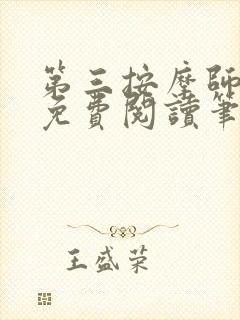 第三按摩師
免費閱讀筆
王盛荣